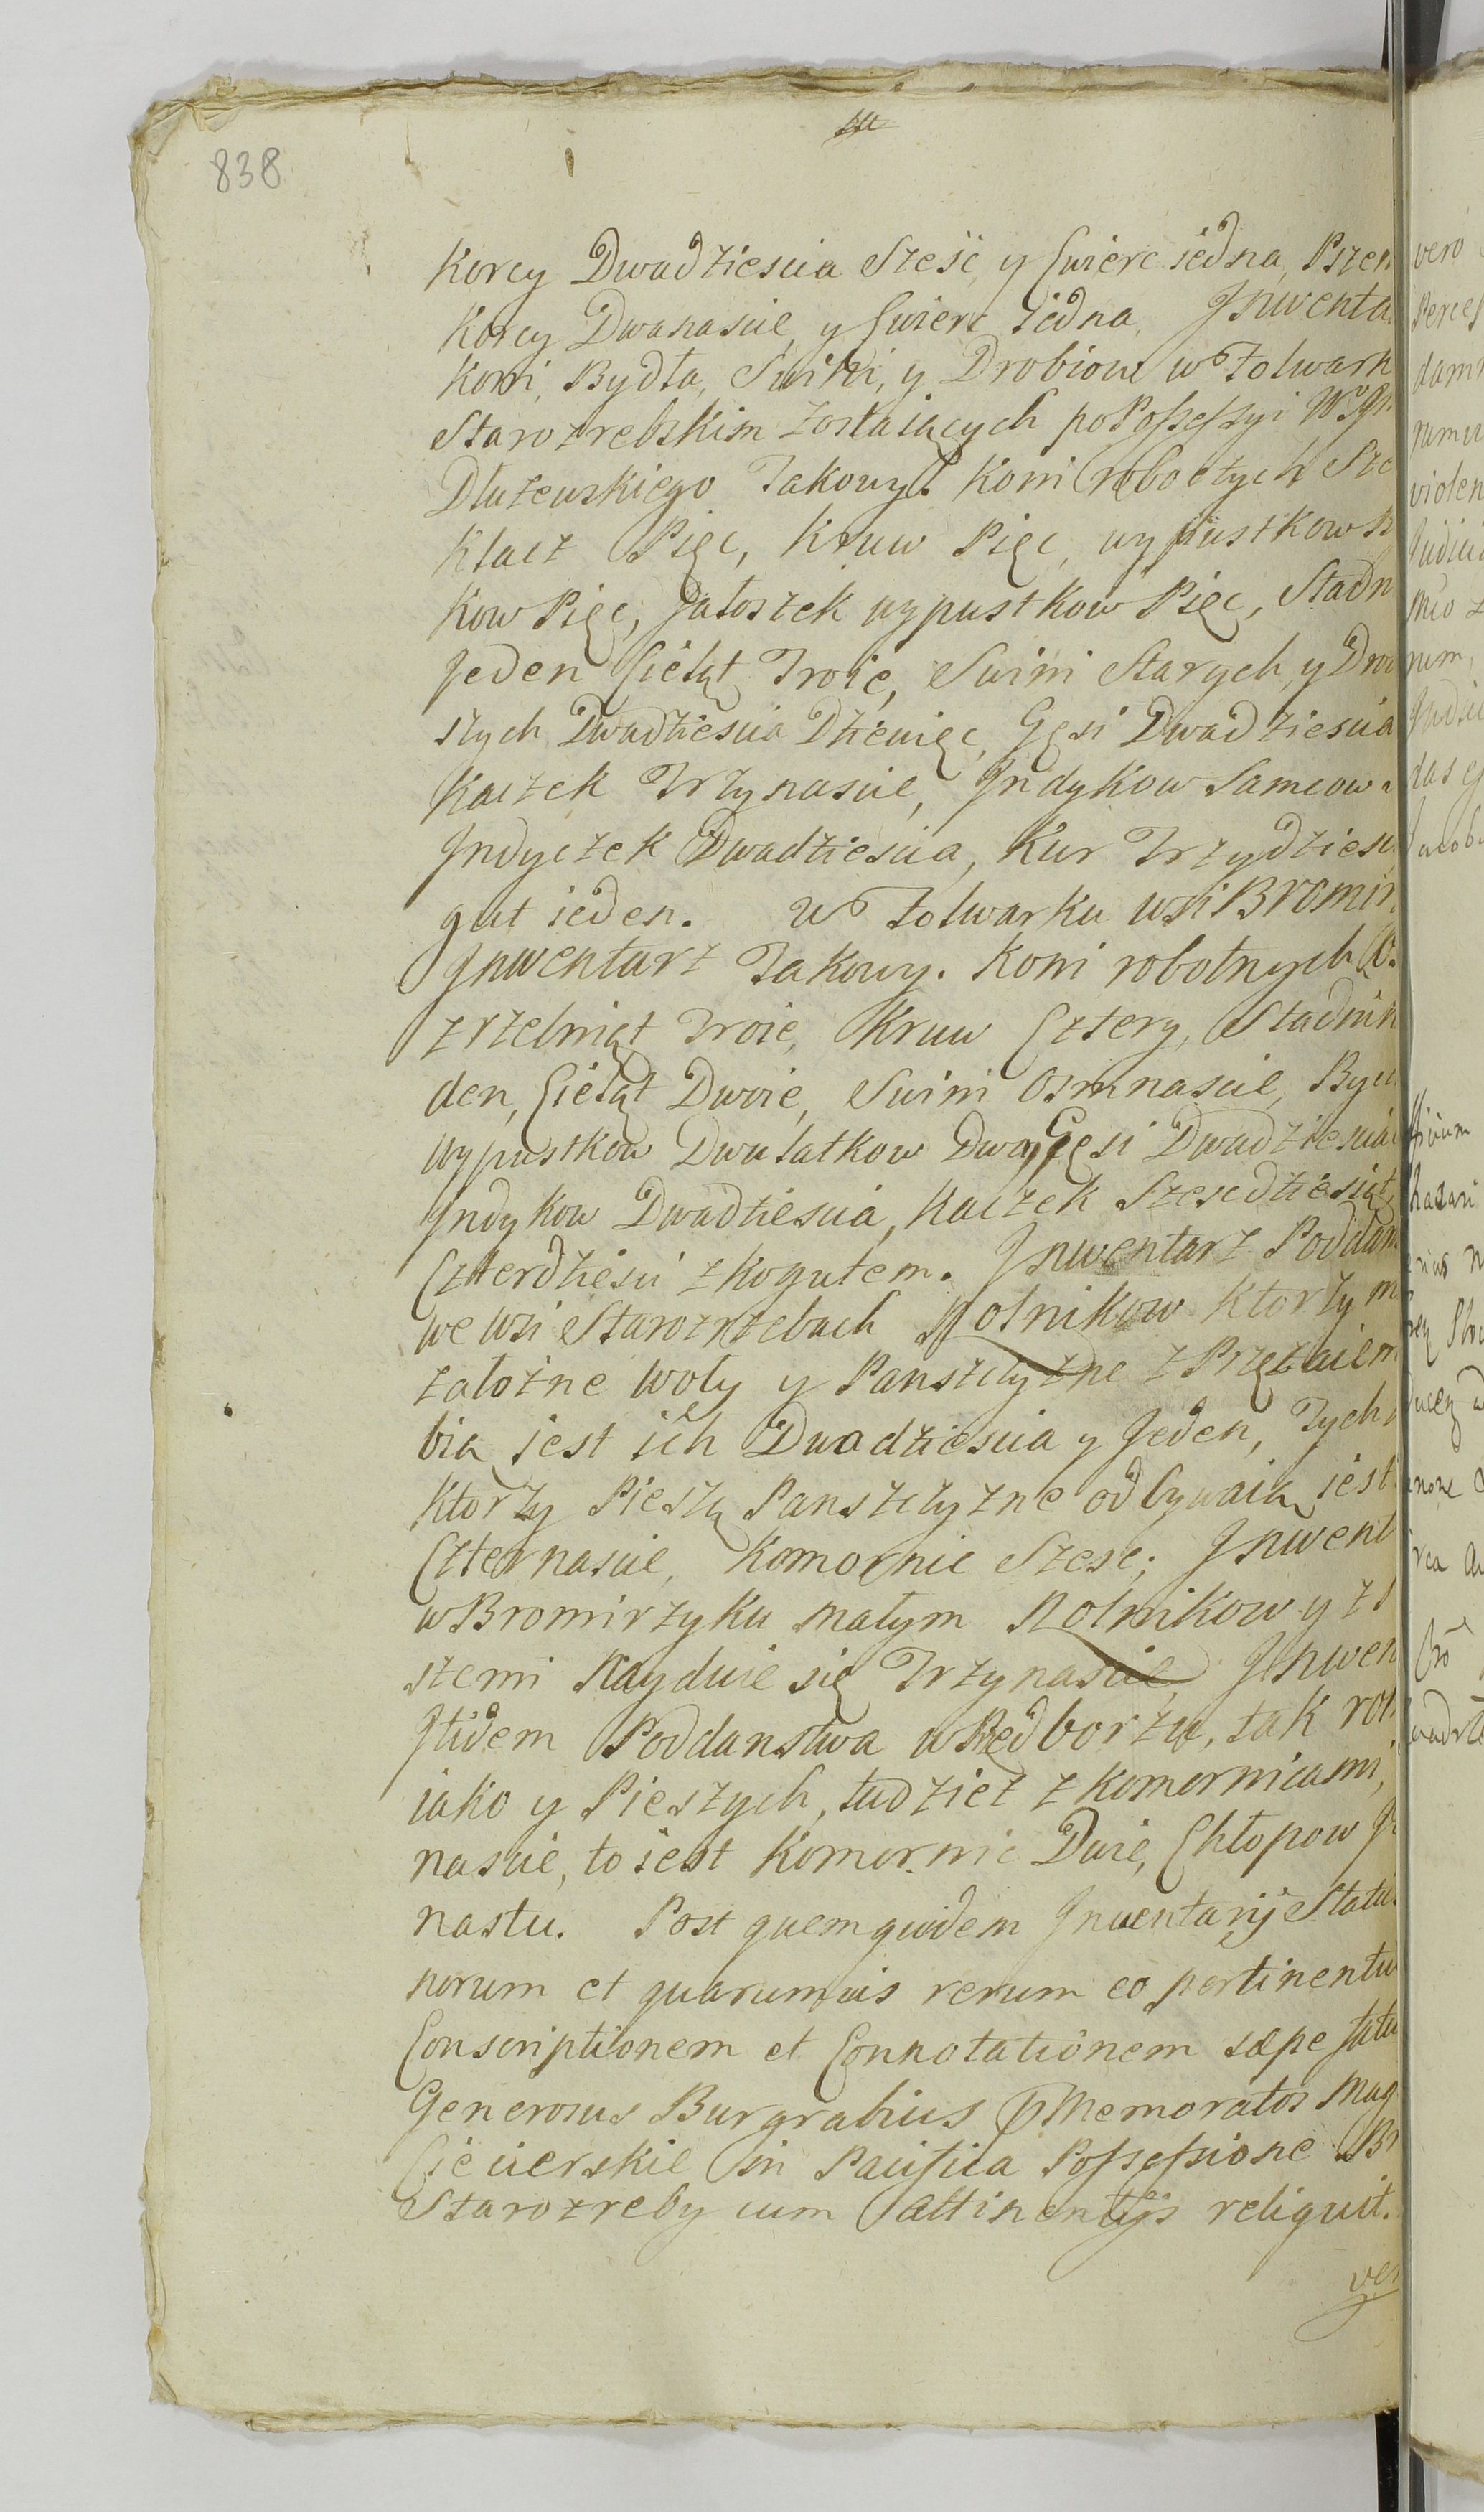 838
Korcy Dwadziescia Szesć y Cwierc iedna, Pszen
Korcy Dwanascie, y Cwierc iedna, Jnwenta
Koni, Bydła, Swini, y Drobiow w Folwark
Starozrebskim zostaiących po Possessyi
Dłuzewskiego Takowy. Koni roboczych Sze
Klacz Pięc, Kruw Pięc, wypustkow
kow Pięc, Jałoszek wypustkow Pięc, Stadn
Jeden Cieląt Troie, Swini Starych, y Dro
stych Dwadziescia Dziewięc, Gęsi Dwadziescia
Kaczek Trzynascie, Jndykow Samcow
Jndyczek Dwadziescia, Kur Trzydziesc
gut ieden. W Folwarku wsi Bromir
Jnwentarz Takowy. Koni robotnych
zrzebniąt Troie, Kruw Cztery, Stadnik
den, Cieląt Dwoie, Swini Osmnascie, Byc
wypustkow Dwulatkow Dwa, Gęsi Dwadziescia
Jndykow Dwadziescia, Kaczek Szescdziesiąt,
Czterdziesci z kogutem. Jnwentarz Poddan
we wsi Starozrzebach Rolnikow ktorzy m
załozne woły y Panszczyzne z Przęzaiem
bią iest ich Dwadziescia y Jeden, Tych
ktorzy Pieszą Panszczyzne odbywaią iest
Czternascie, Komornic Szesc; Jnwent
w Bromirzyku małym Rolnikow y z
szemi Nayduie się Trzynascie, Jnwen
Jtidem Poddanstwa w Redborzu, tak rol
iako y Pieszych, tudziez z komornicami,
nascie, to iest Komornic Dwie, Chłopow
nastu. Post quem quidem Jnventarij Statu
norum et quarumvis rerum eo pertinentu
Conscriptionem et Connotationem sæpe fatu
Generosus Burgrabius Memoratos Mag
Ciecierskie in Pacifica Possessione B
Starozreby cum Attinentijs reliquit.
ver
vero
Perces
damn
violen
Judici
num,
das